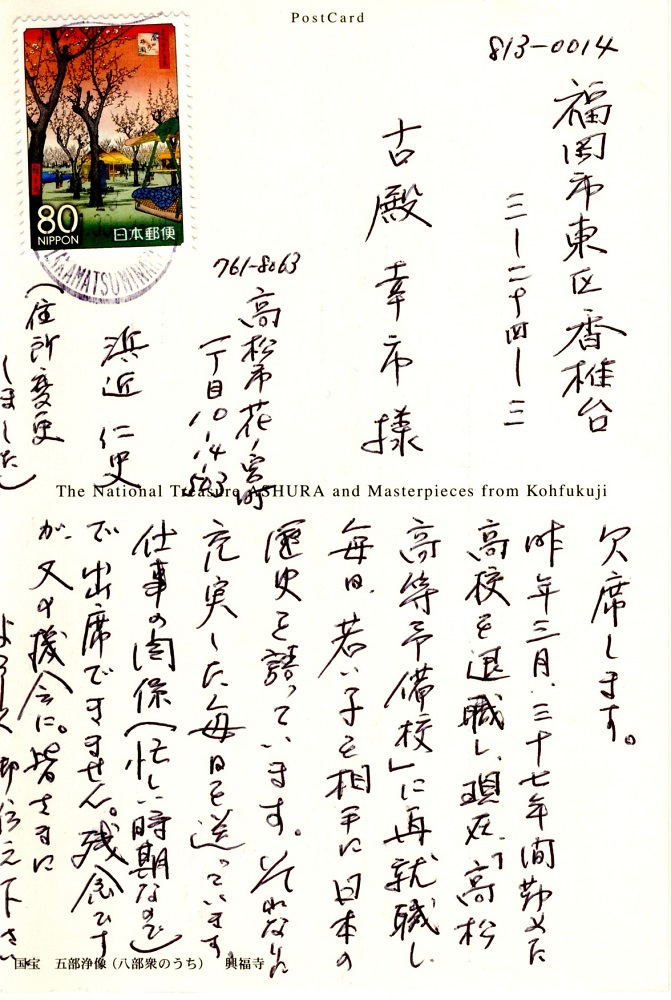 PostCard
813-0014
福岡市東区香椎台
三ー二十四ー三
古殿幸市様
761-8063
高松市花ノ宮町
一丁目10-4-503
浜近仁史
(住所変更
しました)
80
NIPPON
日本郵便
The National Treasure ASHURA and Masterpieces from Kohfukuji
欠席します。
昨年三月、三十七年間勤めた
高校を退職し、現在、「高松
高等予備校」に再就職し
毎日、若い子を相手に日本の
歴史を語っています。それなりに
充実した毎日を送っています。
仕事の関係(忙しい時期なので)
で出席できません。残念です
が、又の機会に。皆さまに
よろしく御伝え下さい
国宝 五部浄像(八部衆のうち) 興福寺